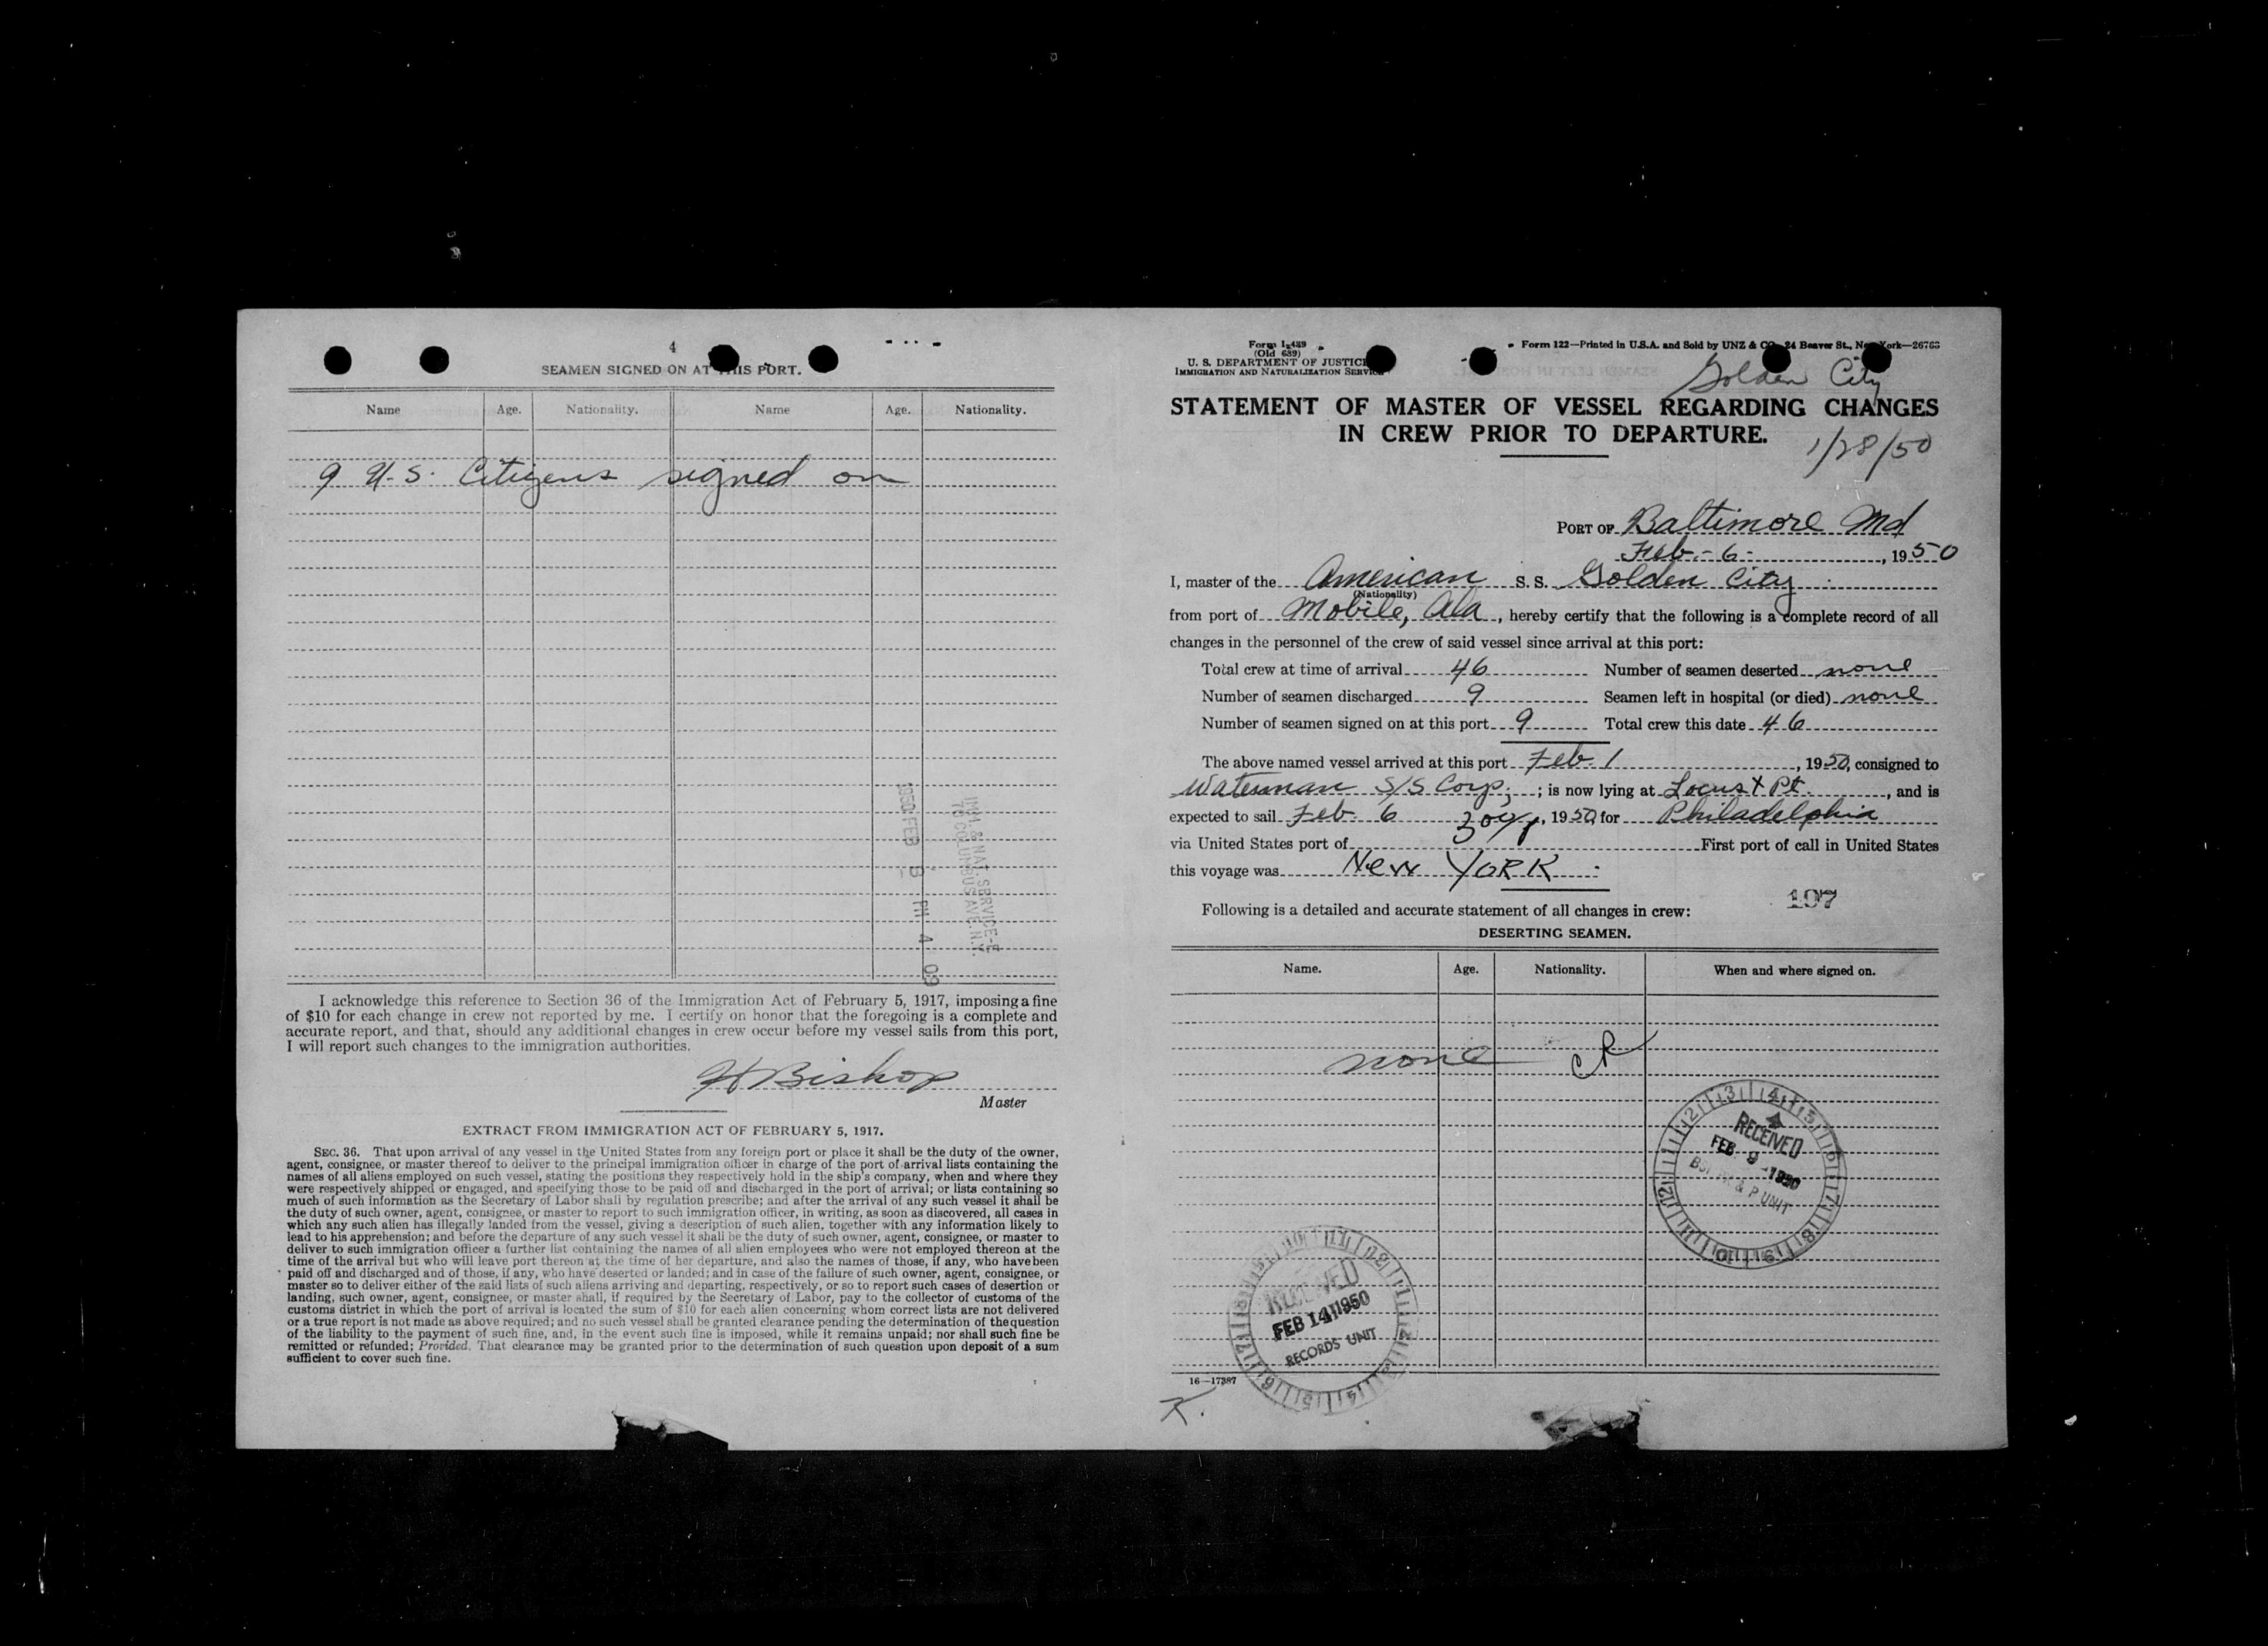 4
SEAMEN SIGNED ON AT THIS PORT.
Name Age. Nationality. Name Age. Nationality.
9 U.S. Citizens signed on
1950 FEB 8 PM 4 09
IMM. & NAT. SERVICE-E
70 COLUMBUS AVE. N.Y.
I acknowledge this reference to Section 36 of the Immigration Act of February 5, 1917, imposing a fine
of $10 for each change in crew not reported by me. I certify on honor that the foregoing is a complete and
accurate report, and that, should any additional changes in crew occur before my vessel sails from this port,
I will report such changes to the immigration authorities.
H Bishop
Master
EXTRACT FROM IMMIGRATION ACT OF FEBRUARY 5, 1917.
SEC. 36. That upon arrival of any vessel in the United States from any foreign port or place it shall be the duty of the owner,
agent, consignee, or master thereof to deliver to the principal immigration officer in charge of the port of arrival lists containing the
names of all aliens employed on such vessel, stating the positions they respectively hold in the ship's company, when and where they
were respectively shipped or engaged, and specifying those to be paid off and discharged in the port of arrival; or lists containing so
much of such information as the Secretary of Labor shall by regulation prescribe; and after the arrival of any such vessel it shall be
the duty of such owner, agent, consignee, or master to report to such immigration officer, in writing, as soon as discovered, all cases in
which any such alien has illegally landed from the vessel, giving a description of such alien, together with any information likely to
lead to his apprehension; and before the departure of any such vessel it shall be the duty of such owner, agent, consignee, or master to
deliver to such immigration officer a further list containing the names of all alien employees who were not employed thereon at the
time of the arrival but who will leave port thereon at the time of her departure, and also the names of those, if any, who have been
paid off and discharged and of those, if any, who have deserted or landed; and in case of the failure of such owner, agent, consignee, or
master so to deliver either of the said lists of such aliens arriving and departing, respectively, or so to report such cases of desertion or
landing, such owner, agent, consignee, or master shall, if required by the Secretary of Labor, pay to the collector of customs of the
customs district in which the port of arrival is located the sum of $10 for each alien concerning whom correct lists are not delivered
or a true report is not made as above required; and no such vessel shall be granted clearance pending the determination of the question
of the liability to the payment of such fine, and, in the event such fine is imposed, while it remains unpaid; nor shall such fine be
remitted or refunded; Provided, That clearance may be granted prior to the determination of such question upon deposit of a sum
sufficient to cover such fine.
Form I-489
(Old 689)
U. S. DEPARTMENT OF JUSTICE
IMMIGRATION AND NATURALIZATION SERVICE
Form 122—Printed in U.S.A. and Sold by UNZ & CO., 24 Beaver St., New York—26763
Golden City
STATEMENT OF MASTER OF VESSEL REGARDING CHANGES
IN CREW PRIOR TO DEPARTURE.
1/28/50
PORT OF Baltimore Md
Feb.-6-, 1950
I, master of the American S. S. Golden City
(Nationality)
from port of Mobile, Ala, hereby certify that the following is a complete record of all
changes in the personnel of the crew of said vessel since arrival at this port:
Total crew at time of arrival 46 Number of seamen deserted none
Number of seamen discharged 9 Seamen left in hospital (or died) none
Number of seamen signed on at this port 9 Total crew this date 46
The above named vessel arrived at this port Feb. 1, 1950, consigned to
Waterman S/S Corp; ; is now lying at Locust Pt., and is
expected to sail Feb. 6, 1950, for Philadelphia
via United States port of First port of call in United States
this voyage was New YORK
107
Following is a detailed and accurate statement of all changes in crew:
DESERTING SEAMEN.
Name. Age. Nationality. When and where signed on.
none CR
RECEIVED
FEB 9 - 1950
& P UNIT
RECEIVED
FEB 14 1950
RECORDS UNIT
16—17387
K.